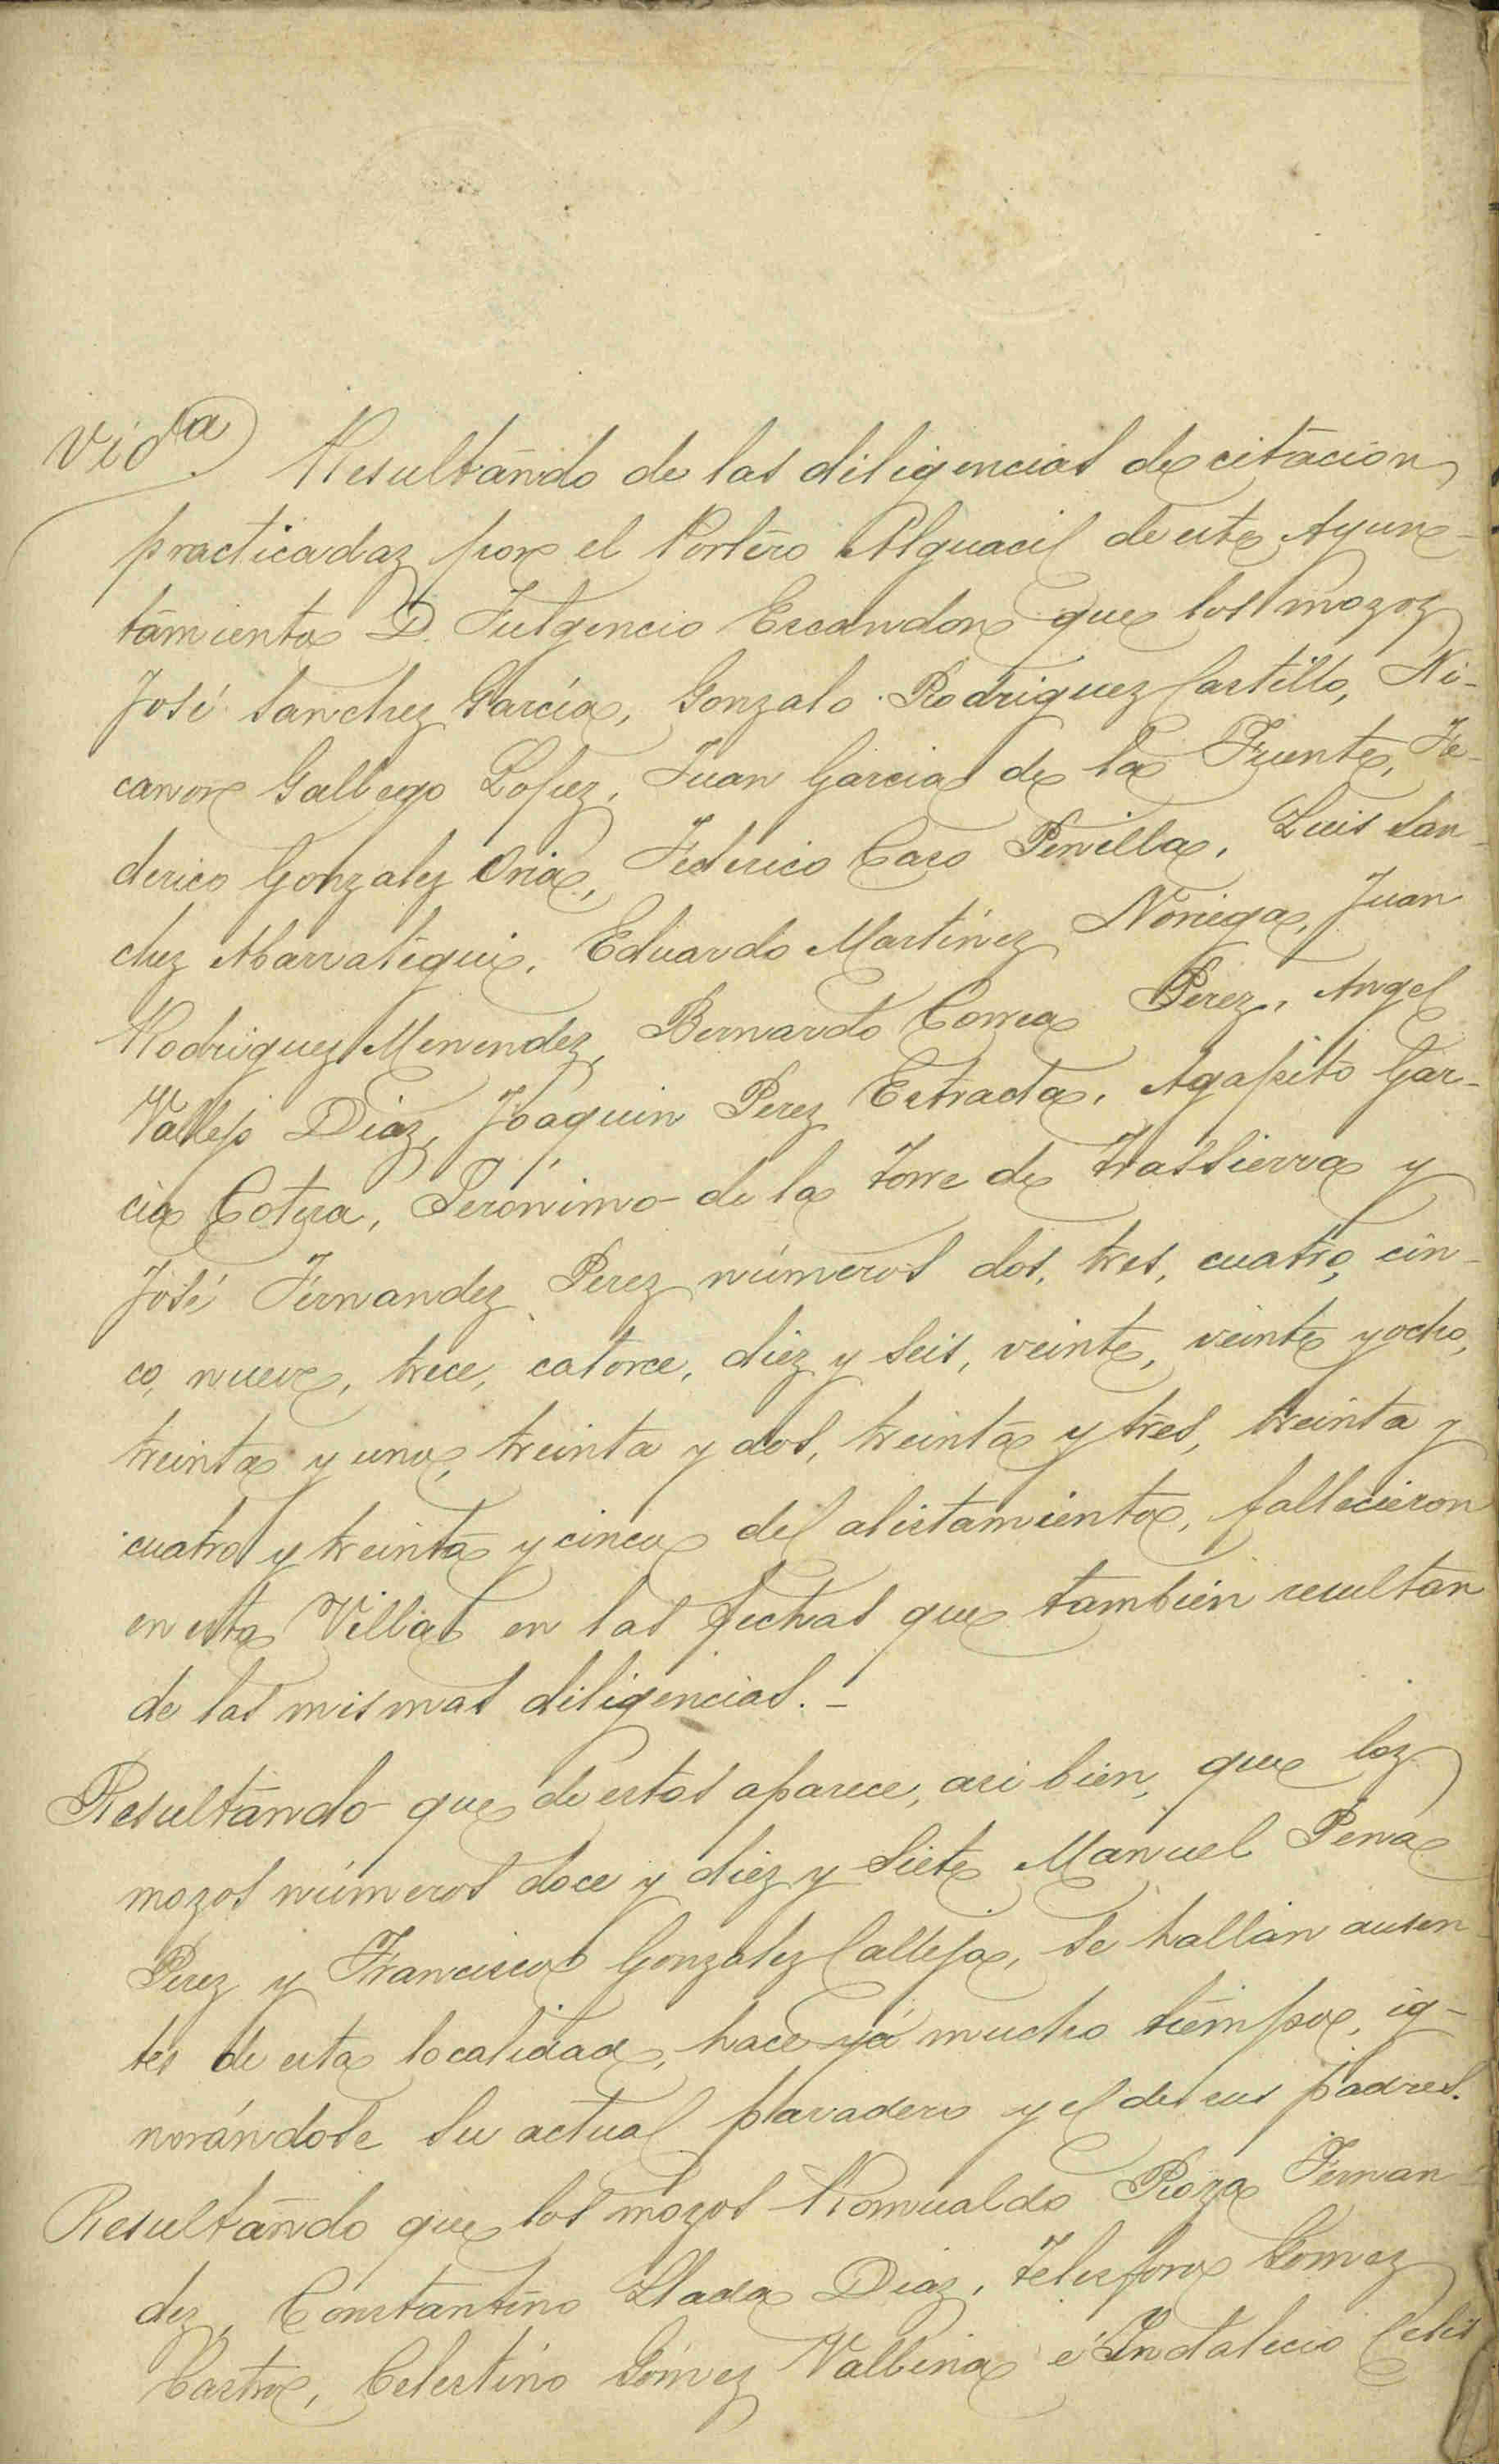 Vid.ª) Resultando de las diligencias de citación
practicadas por el Portero Alguacil de este Ayun-
tamiento D. Fulgencio Escandon que los mozos
José Sanchez García, Gonzalo Rodriguez Castillo, Ni-
canor Gallego Lopez, Juan Garcia de la Fuente, Fe-
derico Gonzalez Oria, Federico Caso Penilla, Luis San-
chez Marrategui, Eduardo Martinez Noriega, Juan
Rodriguez Menendez, Bernardo Correa Perez, Angel
Vallejo Diaz, Joaquin Perez Estrada, Agapito Gar-
cia Cotera, Gerónimo de la Torre de Trassierra y
José Fernandez Perez números dos, tres, cuatro, cin-
co, nueve, trece, catorce, diez y seis, veinte, veinte y ocho,
treinta y uno, treinta y dos, treinta y tres, treinta y
cuatro y treinta y cinco del alistamiento, fallecieron
en esta Villa en las fechas que tambien resultan
de las mismas diligencias.-
Resultando que de estas aparece, asi bien, que los
mozos números doce y diez y siete Manuel Pena
Perez y Francisco Gonzalez Calleja, se hallan ausen-
tes de esta localidad, hace yá mucho tiempo, ig-
norándose su actual paradero y el de sus padres.
Resultando que los mozos Romualdo Roza Fernan-
dez, Constantino Llada Diaz, Telesforo Gomez
Castro, Celestino Gómez Valbina é Indalecio Celis